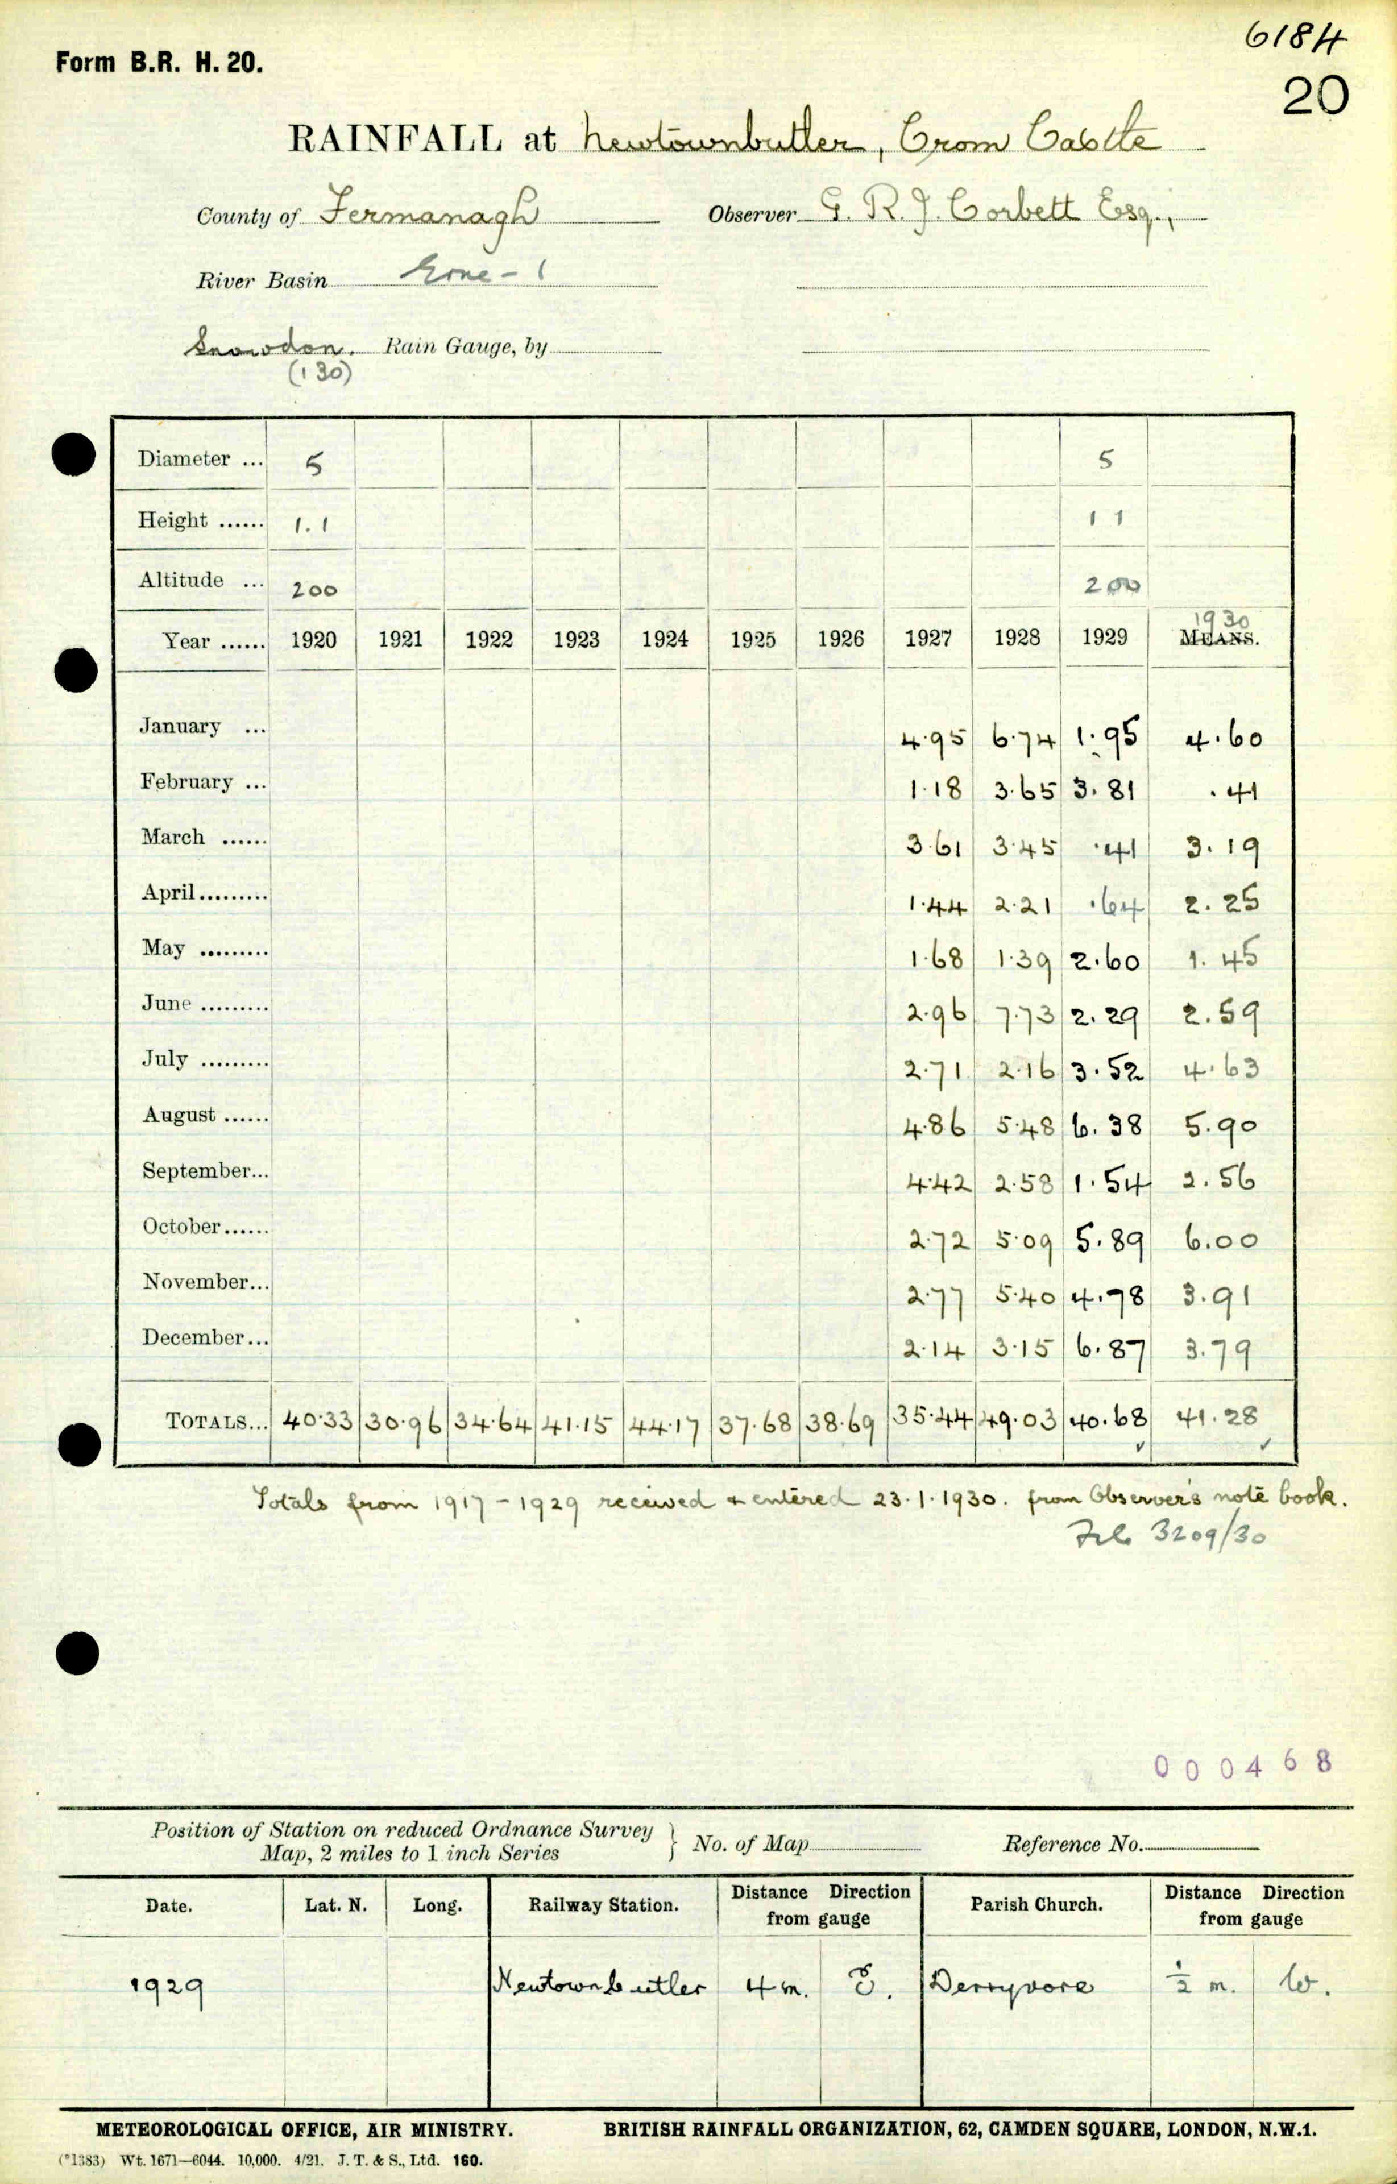 6184
Form B.R. H. 20.
20
RAINFALL at Newtownbutler, Crom Castle
County of Fermanagh Observer G. R. J. Corbett Esq.,
River Basin Erne - 1
Snowdon. Rain Gauge, by
(1 30)
Diameter ... 5 5
Height ...... 1.1 1 1
Altitude ... 200 200
1930
Year ...... 1920 1921 1922 1923 1924 1925 1926 1927 1928 1929 MEANS.
January ... 4.95 6.74 1.95 4.60
February ... 1.18 3.65 3.81 .41
March ...... 3.61 3.45 .41 3.19
April......... 1.44 2.21 .64 2.25
May ......... 1.68 1.39 2.60 1.45
June ......... 2.96 7.73 2.29 2.59
July ......... 2.71 2.16 3.52 4.63
August ...... 4.86 5.48 6.38 5.90
September... 4.42 2.58 1.54 2.56
October...... 2.72 5.09 5.89 6.00
November... 2.77 5.40 4.78 3.91
December... 2.14 3.15 6.87 3.79
TOTALS... 40.33 30.96 34.64 41.15 44.17 37.68 38.69 35.44 49.03 40.68 41.28
Totals from 1917 - 1929 received & entered 23.1.1930. from Observer's note book.
File 3209/30
000468
Position of Station on reduced Ordnance Survey } No. of Map Reference No.
Map, 2 miles to 1 inch Series
Date. Lat. N. Long. Railway Station. Distance Direction Parish Church. Distance Direction
from gauge from gauge
1929 Newtownbutler 4 m. E. Derryvore ½ m. W.
METEOROLOGICAL OFFICE, AIR MINISTRY. BRITISH RAINFALL ORGANIZATION, 62, CAMDEN SQUARE, LONDON, N.W.1.
(*1383) Wt. 1671—6044. 10,000. 4/21. J. T. & S., Ltd. 160.